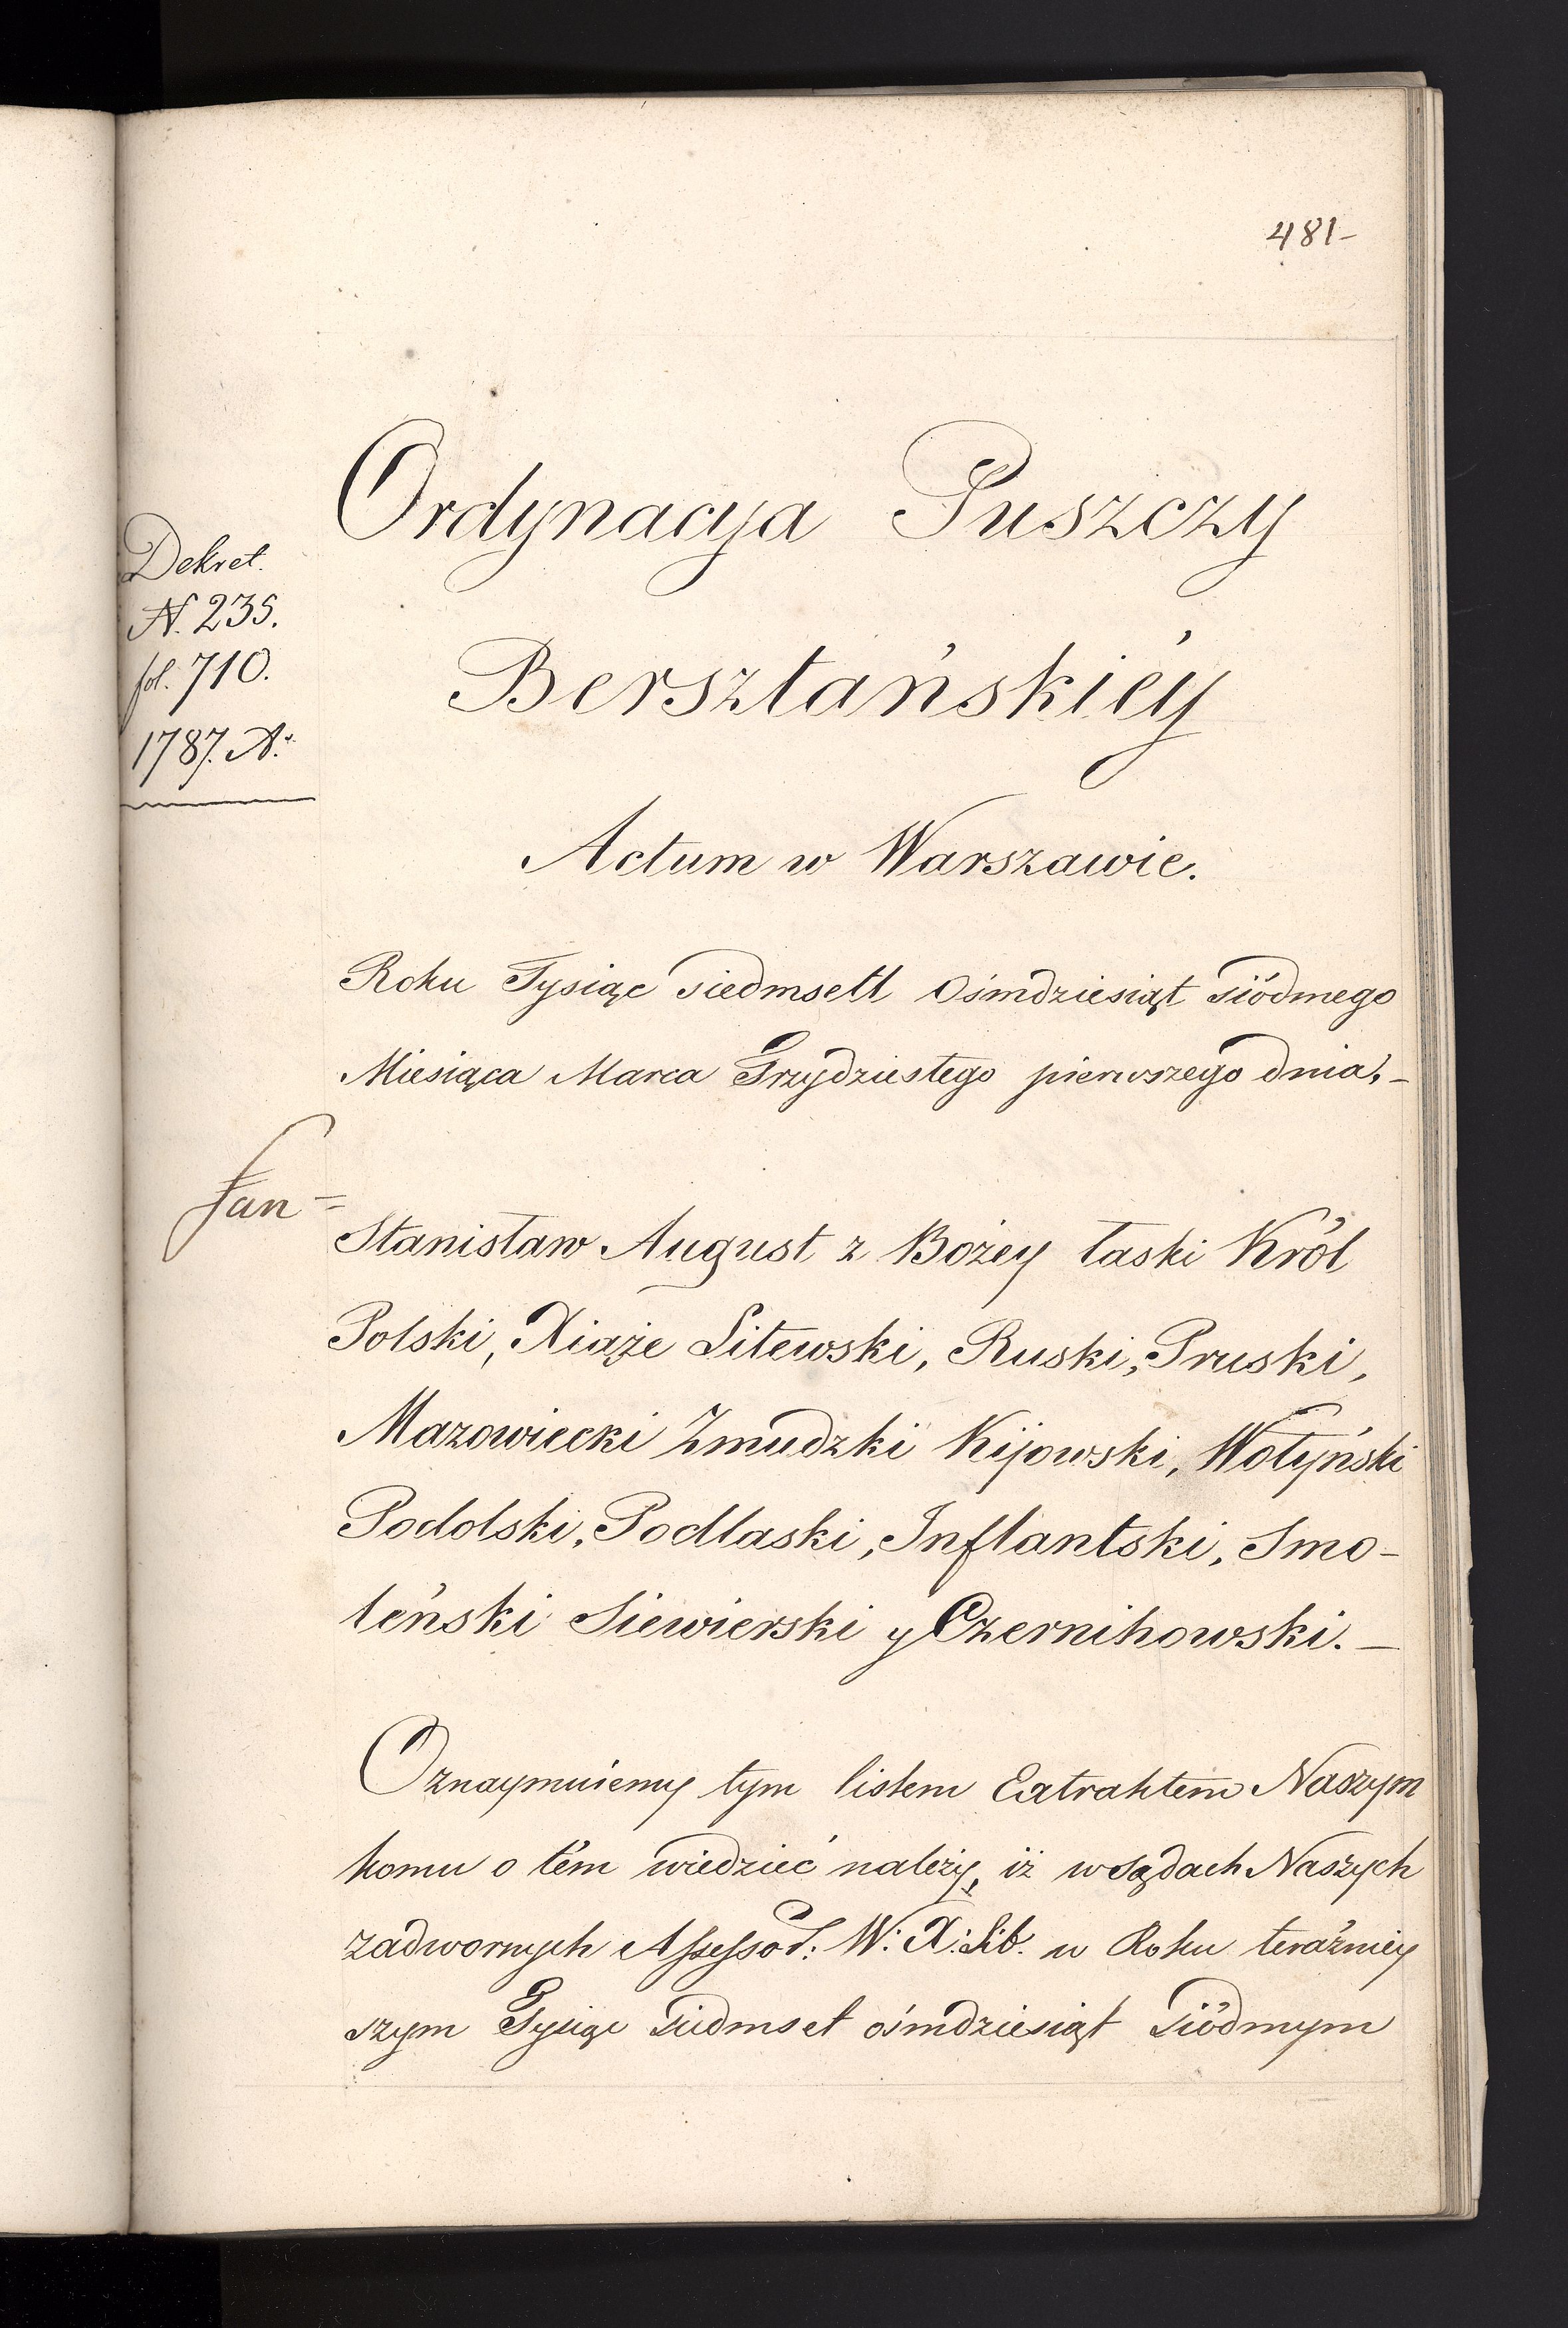 481-
Ordynacyja Puszczy
Dekret.
N. 235.
fol. 710.
1787. A.
Bersztańskiéy
Actum w Warszawie.
Roku Tysiąc siedmsett Ośmdziesiąt siódmego
Miesiąca Marca Trzydziestego pierwszego dnia,-
Stanisław August z Bożey łaski Król
Polski, Xiąże Litewski, Ruski, Pruski,
Mazowiecki Zmudzki Kijowski, Wołyński
Podolski, Podlaski, Inflantski, Smo-
leński Siewierski y Czernihowski. —
Oznaymuiemy tym listem Extraktem Naszym
komu o tém wiedzieć należy, iż w Sądach Naszych
zadwornych Assessor: W: X: Lit. w Roku teraźniey
szym Tysiąc siedmset ośmdziesiąt siódmym